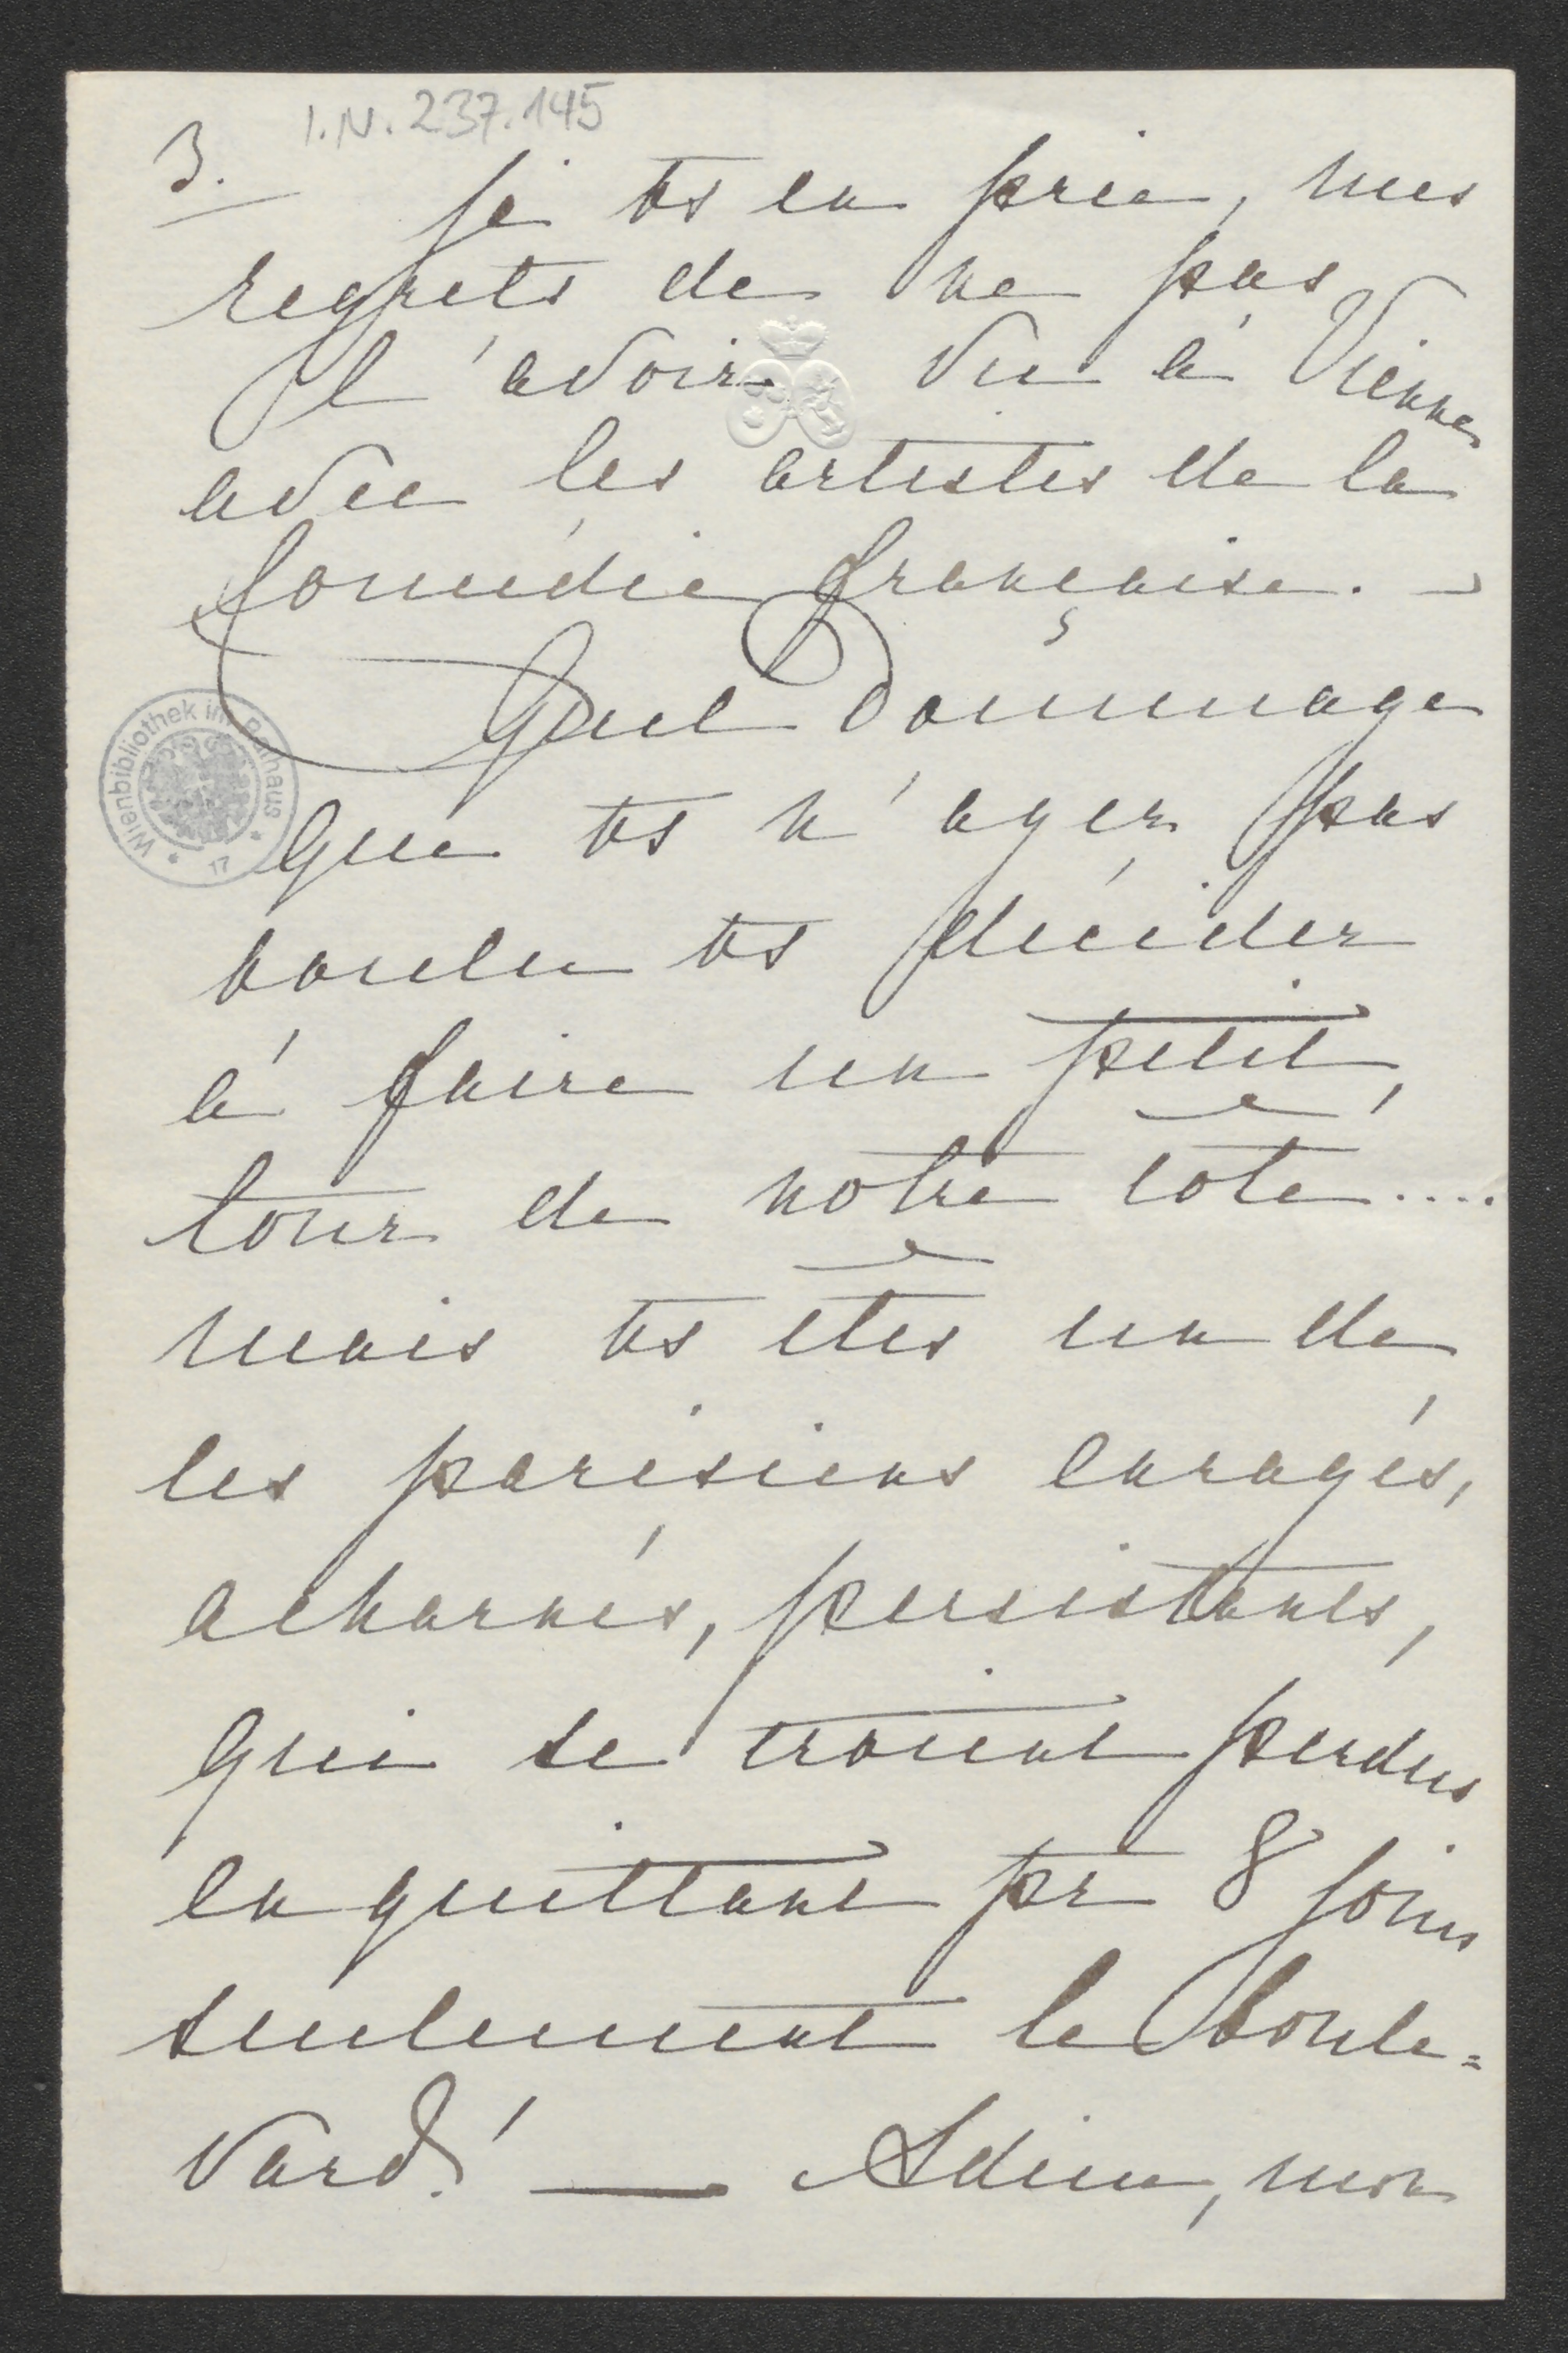 I.N. 237.145
3.
je vs en prie, mes
regrets de ne pas
l'avoir vu à Vienne
avec les artistes de la
Comédie française. —
Quel dommage
que vs n'ayez pas
voulu vs décider
à faire un petit
tour de notre côté....
mais vs êtes un de
ces parisiens enragés,
acharnés, persistants,
qui se croient perdus
en quittant pr 8 jours
seulement le boule=
vard! — Adieu, mon
Wienbibliothek im Rathaus
17